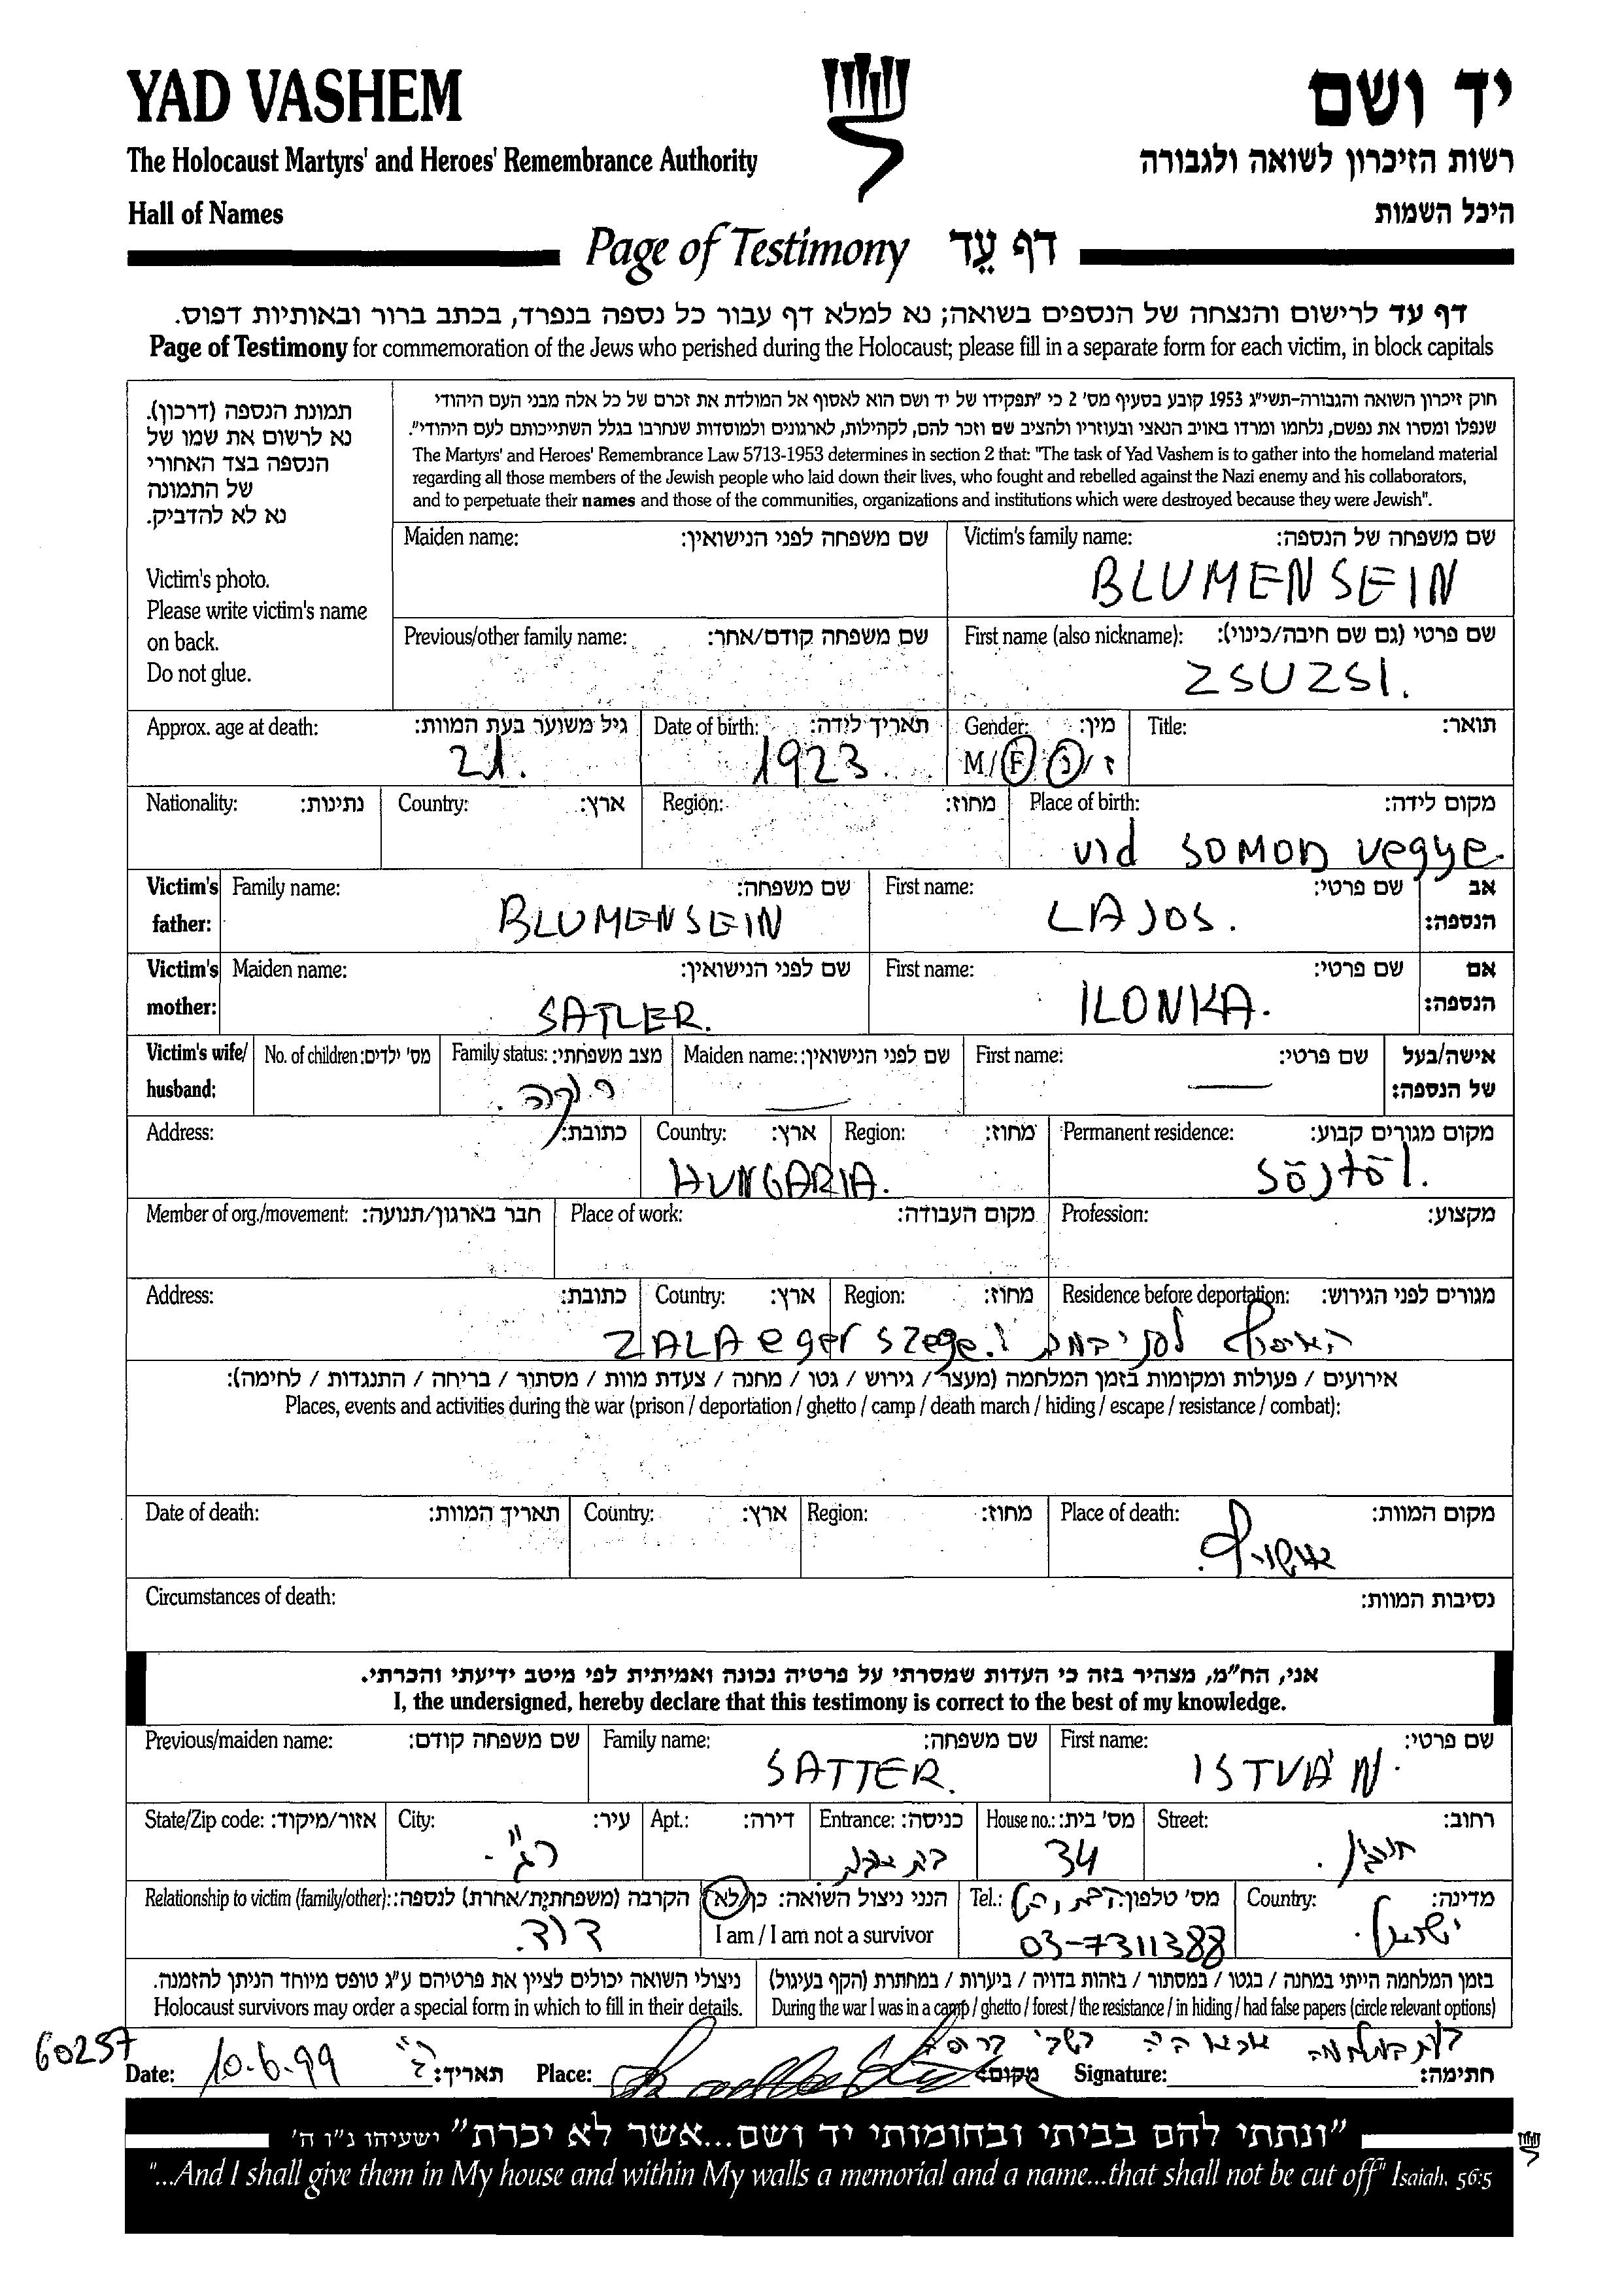 YAD VASHEM
יד ושם
The Holocaust Martyrs' and Heroes' Remembrance Authority
רשות הזיכרון לשואה ולגבורה
Hall of Names
היכל השמות
Page of Testimony דף עֵד
דף עד לרישום והנצחה של הנספים בשואה; נא למלא דף עבור כל נספה בנפרד, בכתב ברור ובאותיות דפוס.
Page of Testimony for commemoration of the Jews who perished during the Holocaust; please fill in a separate form for each victim, in block capitals
תמונת הנספה (דרכון).
נא לרשום את שמו של
הנספה בצד האחורי
של התמונה
נא לא להדביק.
Victim's photo.
Please write victim's name
on back.
Do not glue.
חוק זיכרון השואה והגבורה-תשי"ג 1953 קובע בסעיף מס' 2 כי "תפקידו של יד ושם הוא לאסוף אל המולדת את זכרם של כל אלה מבני העם היהודי
שנפלו ומסרו את נפשם, נלחמו ומרדו באויב הנאצי ובעוזריו ולהציב שם וזכר להם, לקהילות, לארגונים ולמוסדות שנחרבו בגלל השתייכותם לעם היהודי".
The Martyrs' and Heroes' Remembrance Law 5713-1953 determines in section 2 that: "The task of Yad Vashem is to gather into the homeland material
regarding all those members of the Jewish people who laid down their lives, who fought and rebelled against the Nazi enemy and his collaborators,
and to perpetuate their names and those of the communities, organizations and institutions which were destroyed because they were Jewish".
Maiden name: שם משפחה לפני הנישואין: Victim's family name: שם משפחה של הנספה:
BLUMENSEIN
Previous/other family name: שם משפחה קודם/אחר: First name (also nickname): שם פרטי (גם שם חיבה/כינוי):
ZSUZSI.
Approx. age at death: גיל משוער בעת המוות: Date of birth: תאריך לידה: Gender: מין: Title: תואר:
21. 1923. M/F נ/ז
Nationality: נתינות: Country: ארץ: Region: מחוז: Place of birth: מקום לידה:
vid SOMOD vegye.
Victim's father: Family name: שם משפחה: First name: שם פרטי: אב הנספה:
BLUMENSEIN LAJOS.
Victim's mother: Maiden name: שם לפני הנישואין: First name: שם פרטי: אם הנספה:
SATLER. ILONKA.
Victim's wife/ husband: No. of children: מס' ילדים: Family status: מצב משפחתי: Maiden name: שם לפני הנישואין: First name: שם פרטי: אישה/בעל של הנספה:
רווקה.
Address: כתובת: Country: ארץ: Region: מחוז: Permanent residence: מקום מגורים קבוע:
HUNGARIA. Söjtöl.
Member of org./movement: חבר בארגון/תנועה: Place of work: מקום העבודה: Profession: מקצוע:
Address: כתובת: Country: ארץ: Region: מחוז: Residence before deportation: מגורים לפני הגירוש:
ZALA egerszege.
אירועים / פעולות ומקומות בזמן המלחמה (מעצר / גירוש / גטו / מחנה / צעדת מוות / מסתור / בריחה / התנגדות / לחימה):
Places, events and activities during the war (prison / deportation / ghetto / camp / death march / hiding / escape / resistance / combat):
Date of death: תאריך המוות: Country: ארץ: Region: מחוז: Place of death: מקום המוות:
אושויץ.
Circumstances of death: נסיבות המוות:
אני, הח"מ, מצהיר בזה כי העדות שמסרתי על פרטיה נכונה ואמיתית לפי מיטב ידיעתי והכרתי.
I, the undersigned, hereby declare that this testimony is correct to the best of my knowledge.
Previous/maiden name: שם משפחה קודם: Family name: שם משפחה: First name: שם פרטי:
SATTER. ISTVÁN.
State/Zip code: אזור/מיקוד: City: עיר: Apt.: דירה: Entrance: כניסה: House no.: מס' בית: Street: רחוב:
ר"ג 34
Relationship to victim (family/other): הקרבה (משפחתית/אחרת) לנספה: הנני ניצול השואה: כן/לא Tel.: מס' טלפון: Country: מדינה:
דוד. I am / I am not a survivor 03-7311388 ישראל.
ניצולי השואה יכולים לציין את פרטיהם ע"ג טופס מיוחד הניתן להזמנה.
Holocaust survivors may order a special form in which to fill in their details.
בזמן המלחמה הייתי במחנה / בגטו / במסתור / בזהות בדויה / ביערות / במחתרת (הקף בעיגול)
During the war I was in a camp / ghetto / forest / the resistance / in hiding / had false papers (circle relevant options)
60257
Date: 10.6.99 תאריך: Place: מקום: Signature: חתימה:
"ונתתי להם בביתי ובחומותי יד ושם...אשר לא יכרת" ישעיהו נ"ו ה'
"...And I shall give them in My house and within My walls a memorial and a name...that shall not be cut off" Isaiah, 56:5